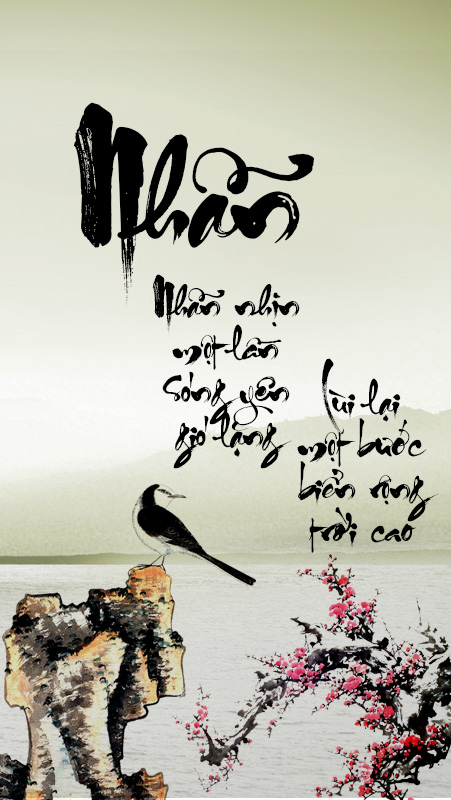 Nhẫn
Nhẫn nhịn
một lần
sóng yên
gió lặng
Lùi lại
một bước
biển rộng
trời cao